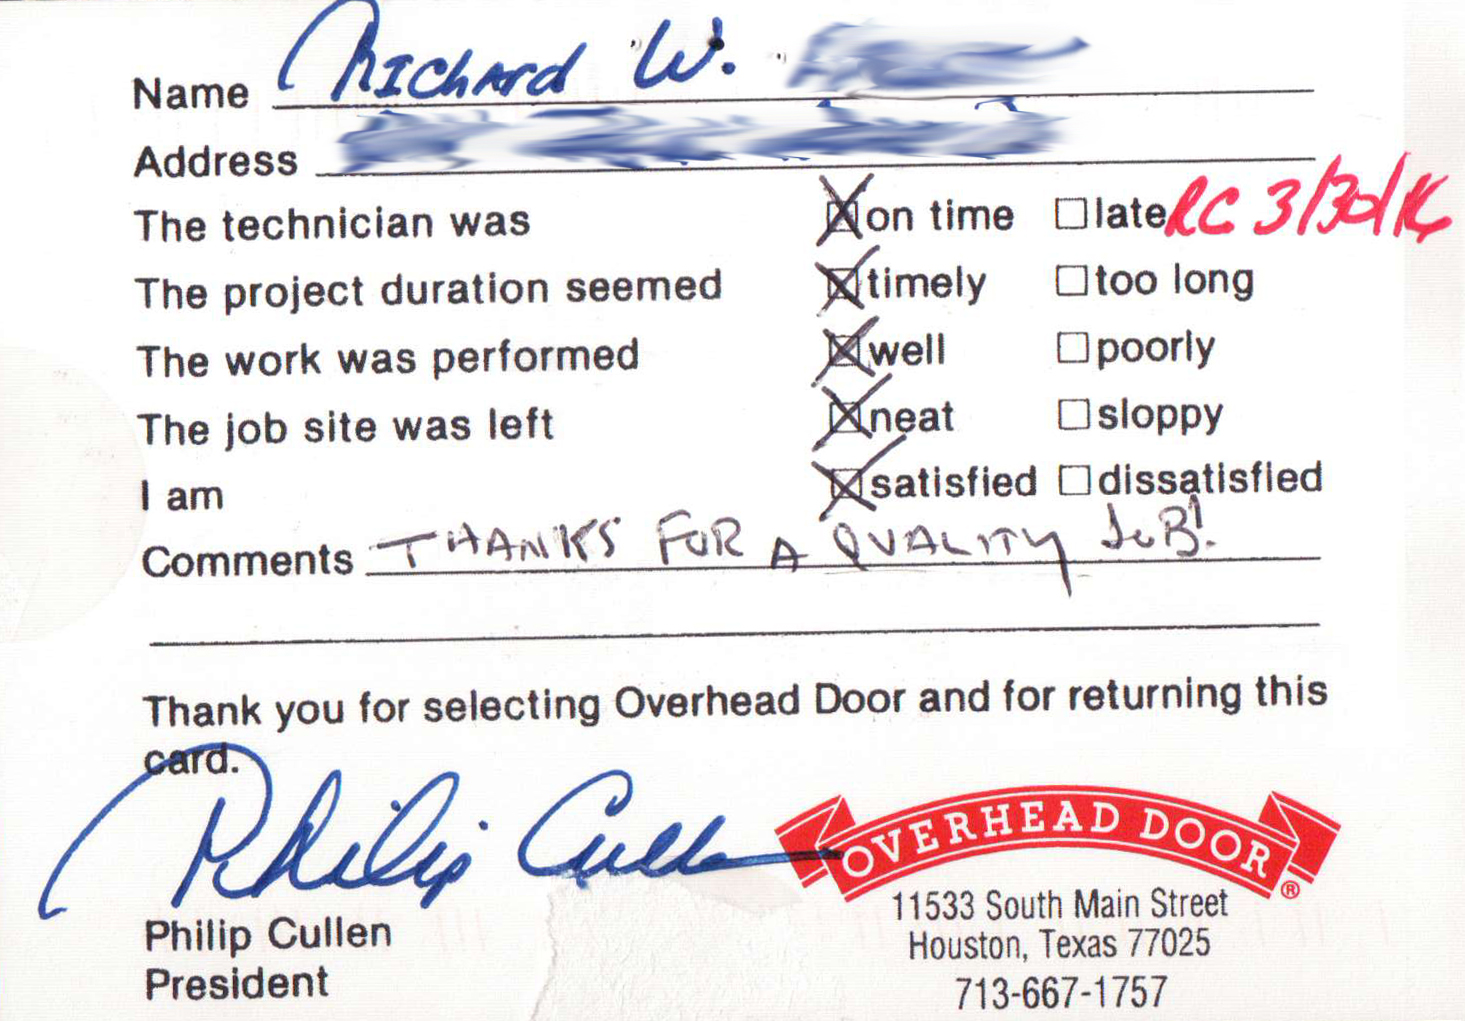 Name Richard W.
Address
The technician was on time late RC 3/30/16
The project duration seemed timely too long
The work was performed well poorly
The job site was left neat sloppy
I am satisfied dissatisfied
Comments THANKS FOR A QUALITY JOB!
Thank you for selecting Overhead Door and for returning this
card.
Philip Cullen
OVERHEAD DOOR®
11533 South Main Street
Philip Cullen
Houston, Texas 77025
President
713-667-1757